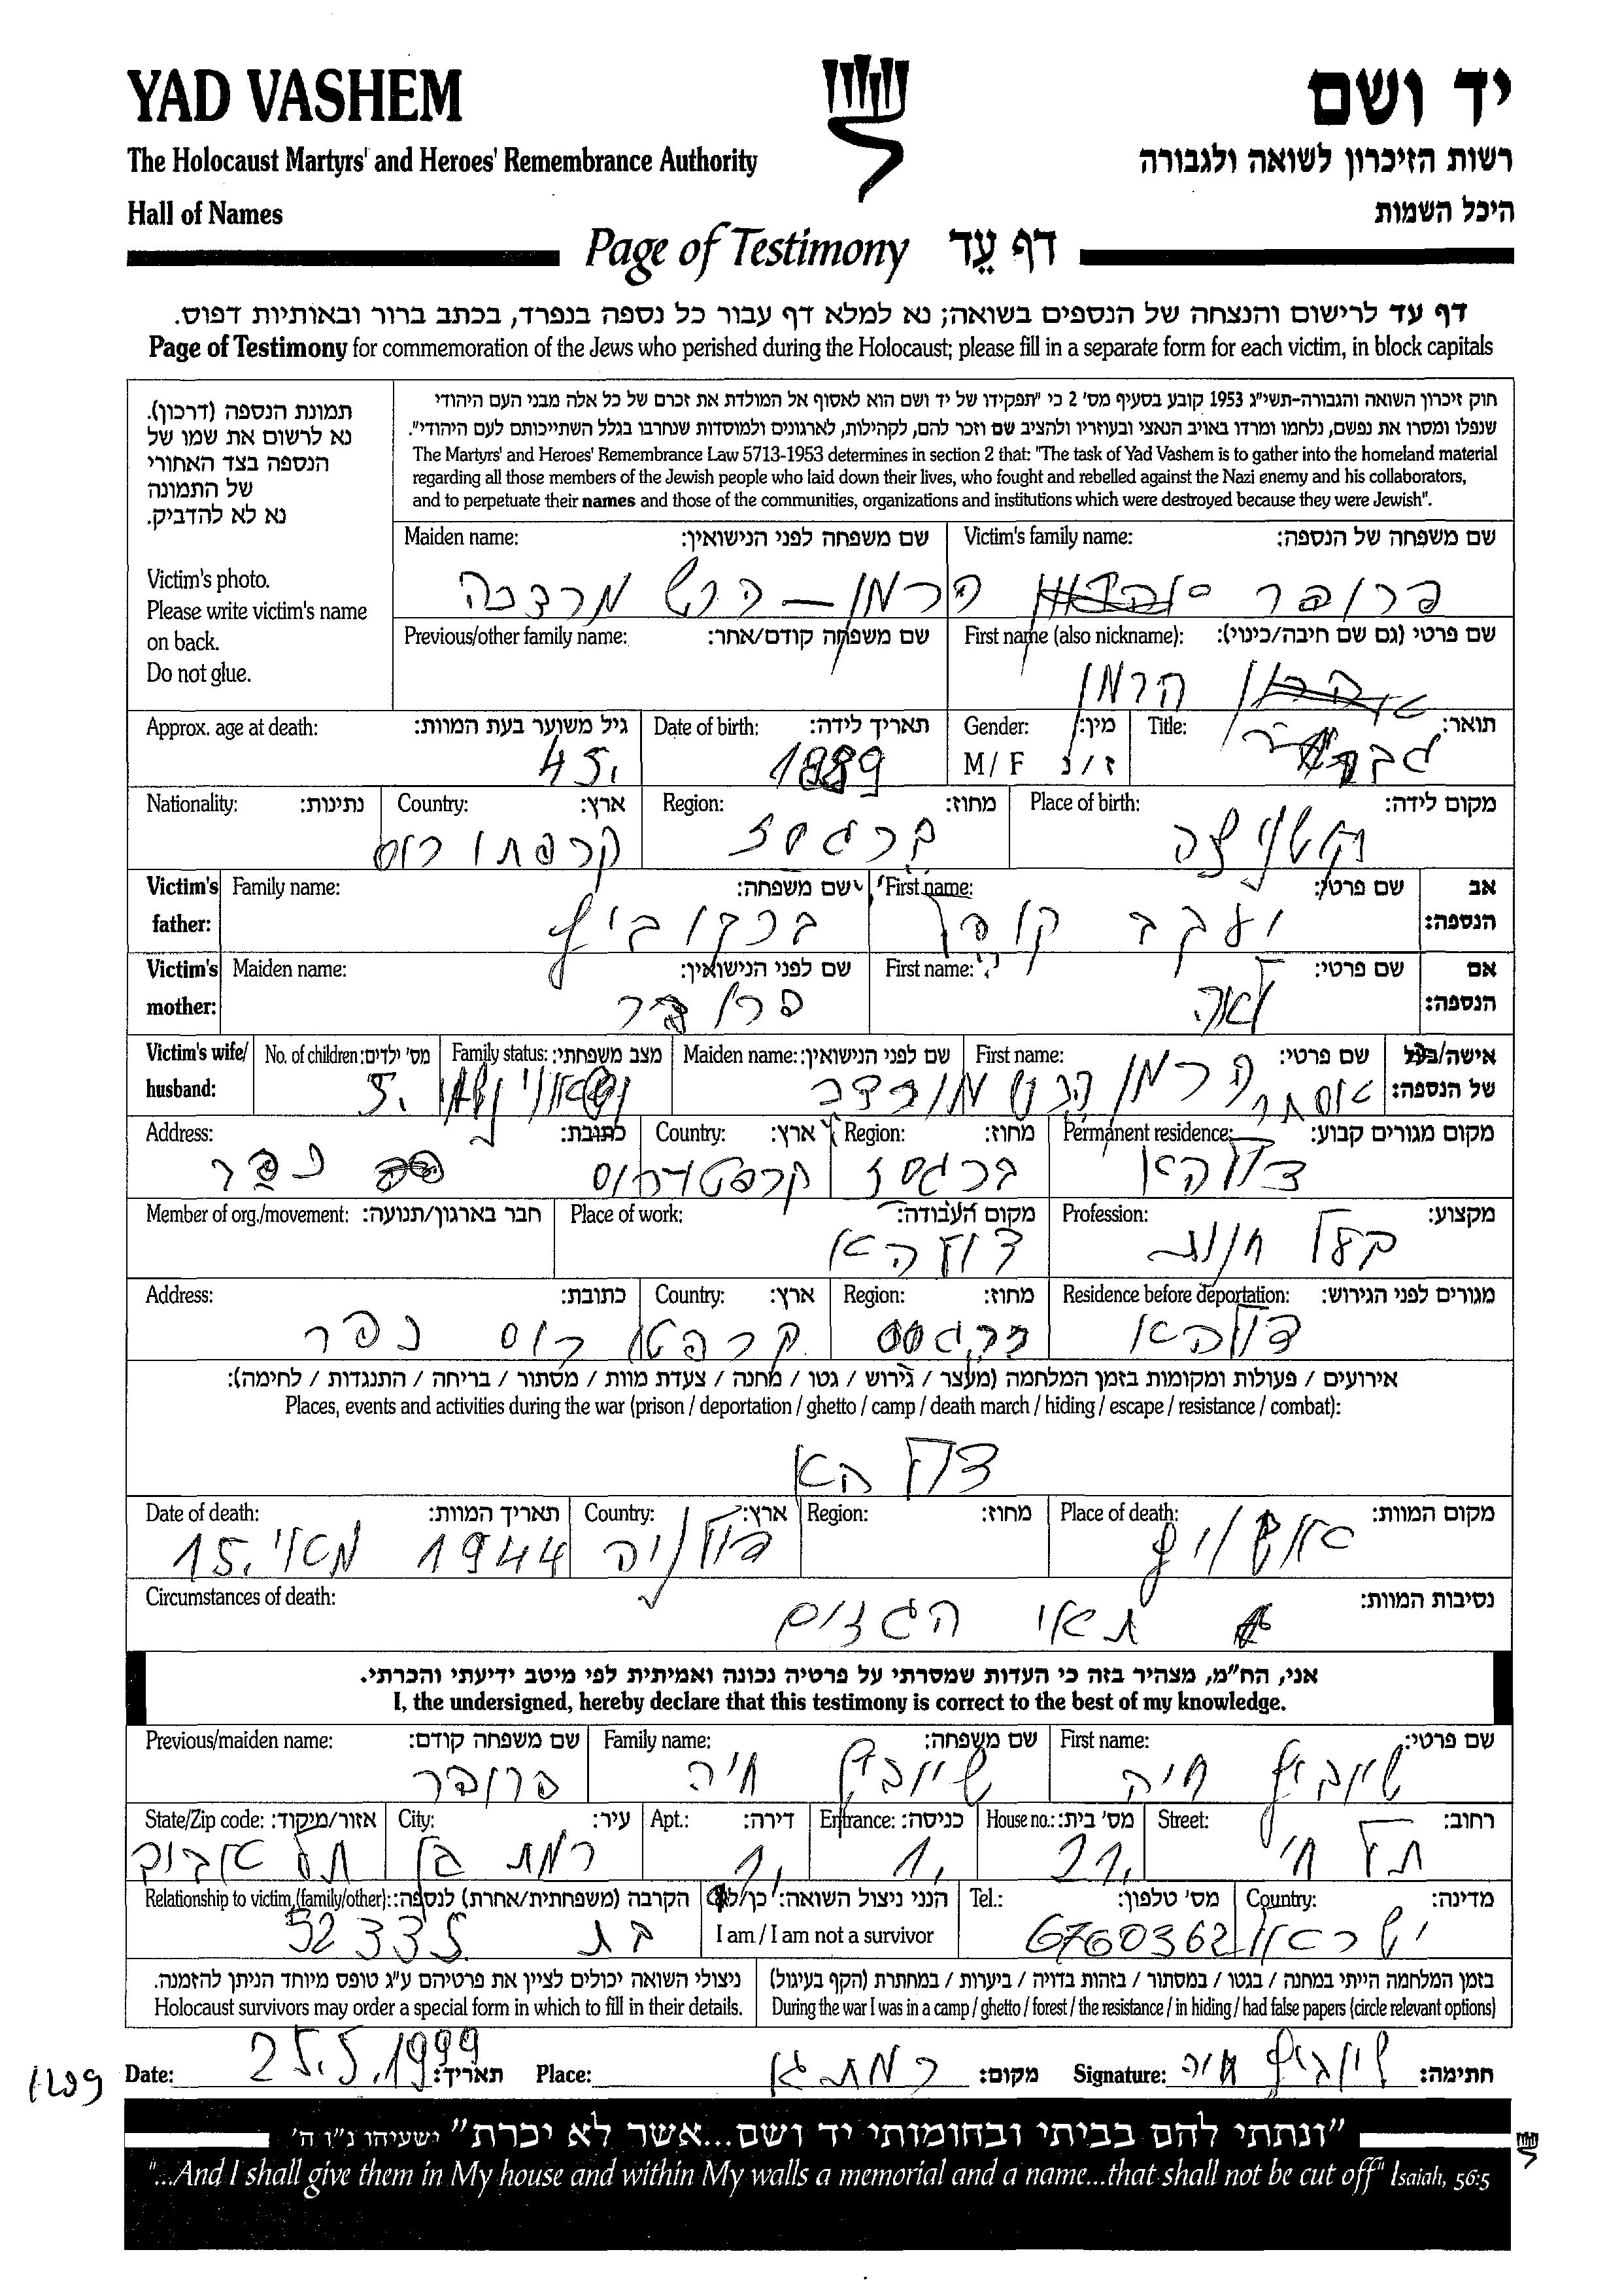 YAD VASHEM
יד ושם
The Holocaust Martyrs' and Heroes' Remembrance Authority
רשות הזיכרון לשואה ולגבורה
Hall of Names
היכל השמות
Page of Testimony דף עֵד
דף עד לרישום והנצחה של הנספים בשואה; נא למלא דף עבור כל נספה בנפרד, בכתב ברור ובאותיות דפוס.
Page of Testimony for commemoration of the Jews who perished during the Holocaust; please fill in a separate form for each victim, in block capitals
תמונת הנספה (דרכון).
נא לרשום את שמו של
הנספה בצד האחורי
של התמונה
נא לא להדביק.
Victim's photo.
Please write victim's name
on back.
Do not glue.
חוק זיכרון השואה והגבורה-תשי"ג 1953 קובע בסעיף מס' 2 כי "תפקידו של יד ושם הוא לאסוף אל המולדת את זכרם של כל אלה מבני העם היהודי
שנפלו ומסרו את נפשם, נלחמו ומרדו באויב הנאצי ובעוזריו ולהציב שם וזכר להם, לקהילות, לארגונים ולמוסדות שנחרבו בגלל השתייכותם לעם היהודי".
The Martyrs' and Heroes' Remembrance Law 5713-1953 determines in section 2 that: "The task of Yad Vashem is to gather into the homeland material
regarding all those members of the Jewish people who laid down their lives, who fought and rebelled against the Nazi enemy and his collaborators,
and to perpetuate their names and those of the communities, organizations and institutions which were destroyed because they were Jewish".
שם משפחה של הנספה: Victim's family name:
שם משפחה לפני הנישואין: Maiden name:
פרובר הרמן – הרש
שם פרטי (גם שם חיבה/כינוי): First name (also nickname):
שם משפחה קודם/אחר: Previous/other family name:
הרמן
תואר: Title:
מין: Gender:
תאריך לידה: Date of birth:
גיל משוער בעת המוות: Approx. age at death:
ז / נ M / F
1889
45.
מקום לידה: Place of birth:
מחוז: Region:
ארץ: Country:
נתינות: Nationality:
ברגסז
קרפתו רוס
אב הנספה: Victim's father:
שם פרטי: First name:
שם משפחה: Family name:
יעקב קופל
ברקוביץ
אם הנספה: Victim's mother:
שם פרטי: First name:
שם לפני הנישואין: Maiden name:
לאה
פרובר
אישה/בעל של הנספה: Victim's wife/ husband:
שם פרטי: First name:
שם לפני הנישואין: Maiden name:
מצב משפחתי: Family status:
מס' ילדים: No. of children:
אסתר הרמן הרש
5.
מקום מגורים קבוע: Permanent residence:
מחוז: Region:
ארץ: Country:
כתובת: Address:
דולהא
ברגסז
כפר
מקצוע: Profession:
מקום העבודה: Place of work:
חבר בארגון/תנועה: Member of org./movement:
בעל חנות
דולהא
מגורים לפני הגירוש: Residence before deportation:
מחוז: Region:
ארץ: Country:
כתובת: Address:
דולהא
ברגסס
קרפטו רוס
כפר
אירועים / פעולות ומקומות בזמן המלחמה (מעצר / גירוש / גטו / מחנה / צעדת מוות / מסתור / בריחה / התנגדות / לחימה):
Places, events and activities during the war (prison / deportation / ghetto / camp / death march / hiding / escape / resistance / combat):
דולהא
מקום המוות: Place of death:
מחוז: Region:
ארץ: Country:
תאריך המוות: Date of death:
אושויץ
פולניה
15. מאי 1944
נסיבות המוות: Circumstances of death:
תאי הגזים
אני, הח"מ, מצהיר בזה כי העדות שמסרתי על פרטיה נכונה ואמיתית לפי מיטב ידיעתי והכרתי.
I, the undersigned, hereby declare that this testimony is correct to the best of my knowledge.
שם פרטי: First name:
שם משפחה: Family name:
שם משפחה קודם: Previous/maiden name:
חיה
חיה
פרובר
רחוב: Street:
מס' בית: House no.:
כניסה: Entrance:
דירה: Apt.:
עיר: City:
אזור/מיקוד: State/Zip code:
תל חי
21.
1.
1.
רמת גן
תל אביב
מדינה: Country:
מס' טלפון: Tel.:
הנני ניצול השואה: כן/לא
I am / I am not a survivor
הקרבה (משפחתית/אחרת) לנספה: Relationship to victim (family/other):
ישראל
6760362
בת
52335
בזמן המלחמה הייתי במחנה / בגטו / במסתור / בזהות בדויה / ביערות / במחתרת (הקף בעיגול)
During the war I was in a camp / ghetto / forest / the resistance / in hiding / had false papers (circle relevant options)
ניצולי השואה יכולים לציין את פרטיהם ע"ג טופס מיוחד הניתן להזמנה.
Holocaust survivors may order a special form in which to fill in their details.
חתימה: Signature:
מקום: רמת גן Place:
תאריך: 25.5.1999 Date:
"ונתתי להם בביתי ובחומותי יד ושם...אשר לא יכרת" ישעיהו נ"ו ה'
"...And I shall give them in My house and within My walls a memorial and a name...that shall not be cut off" Isaiah, 56:5